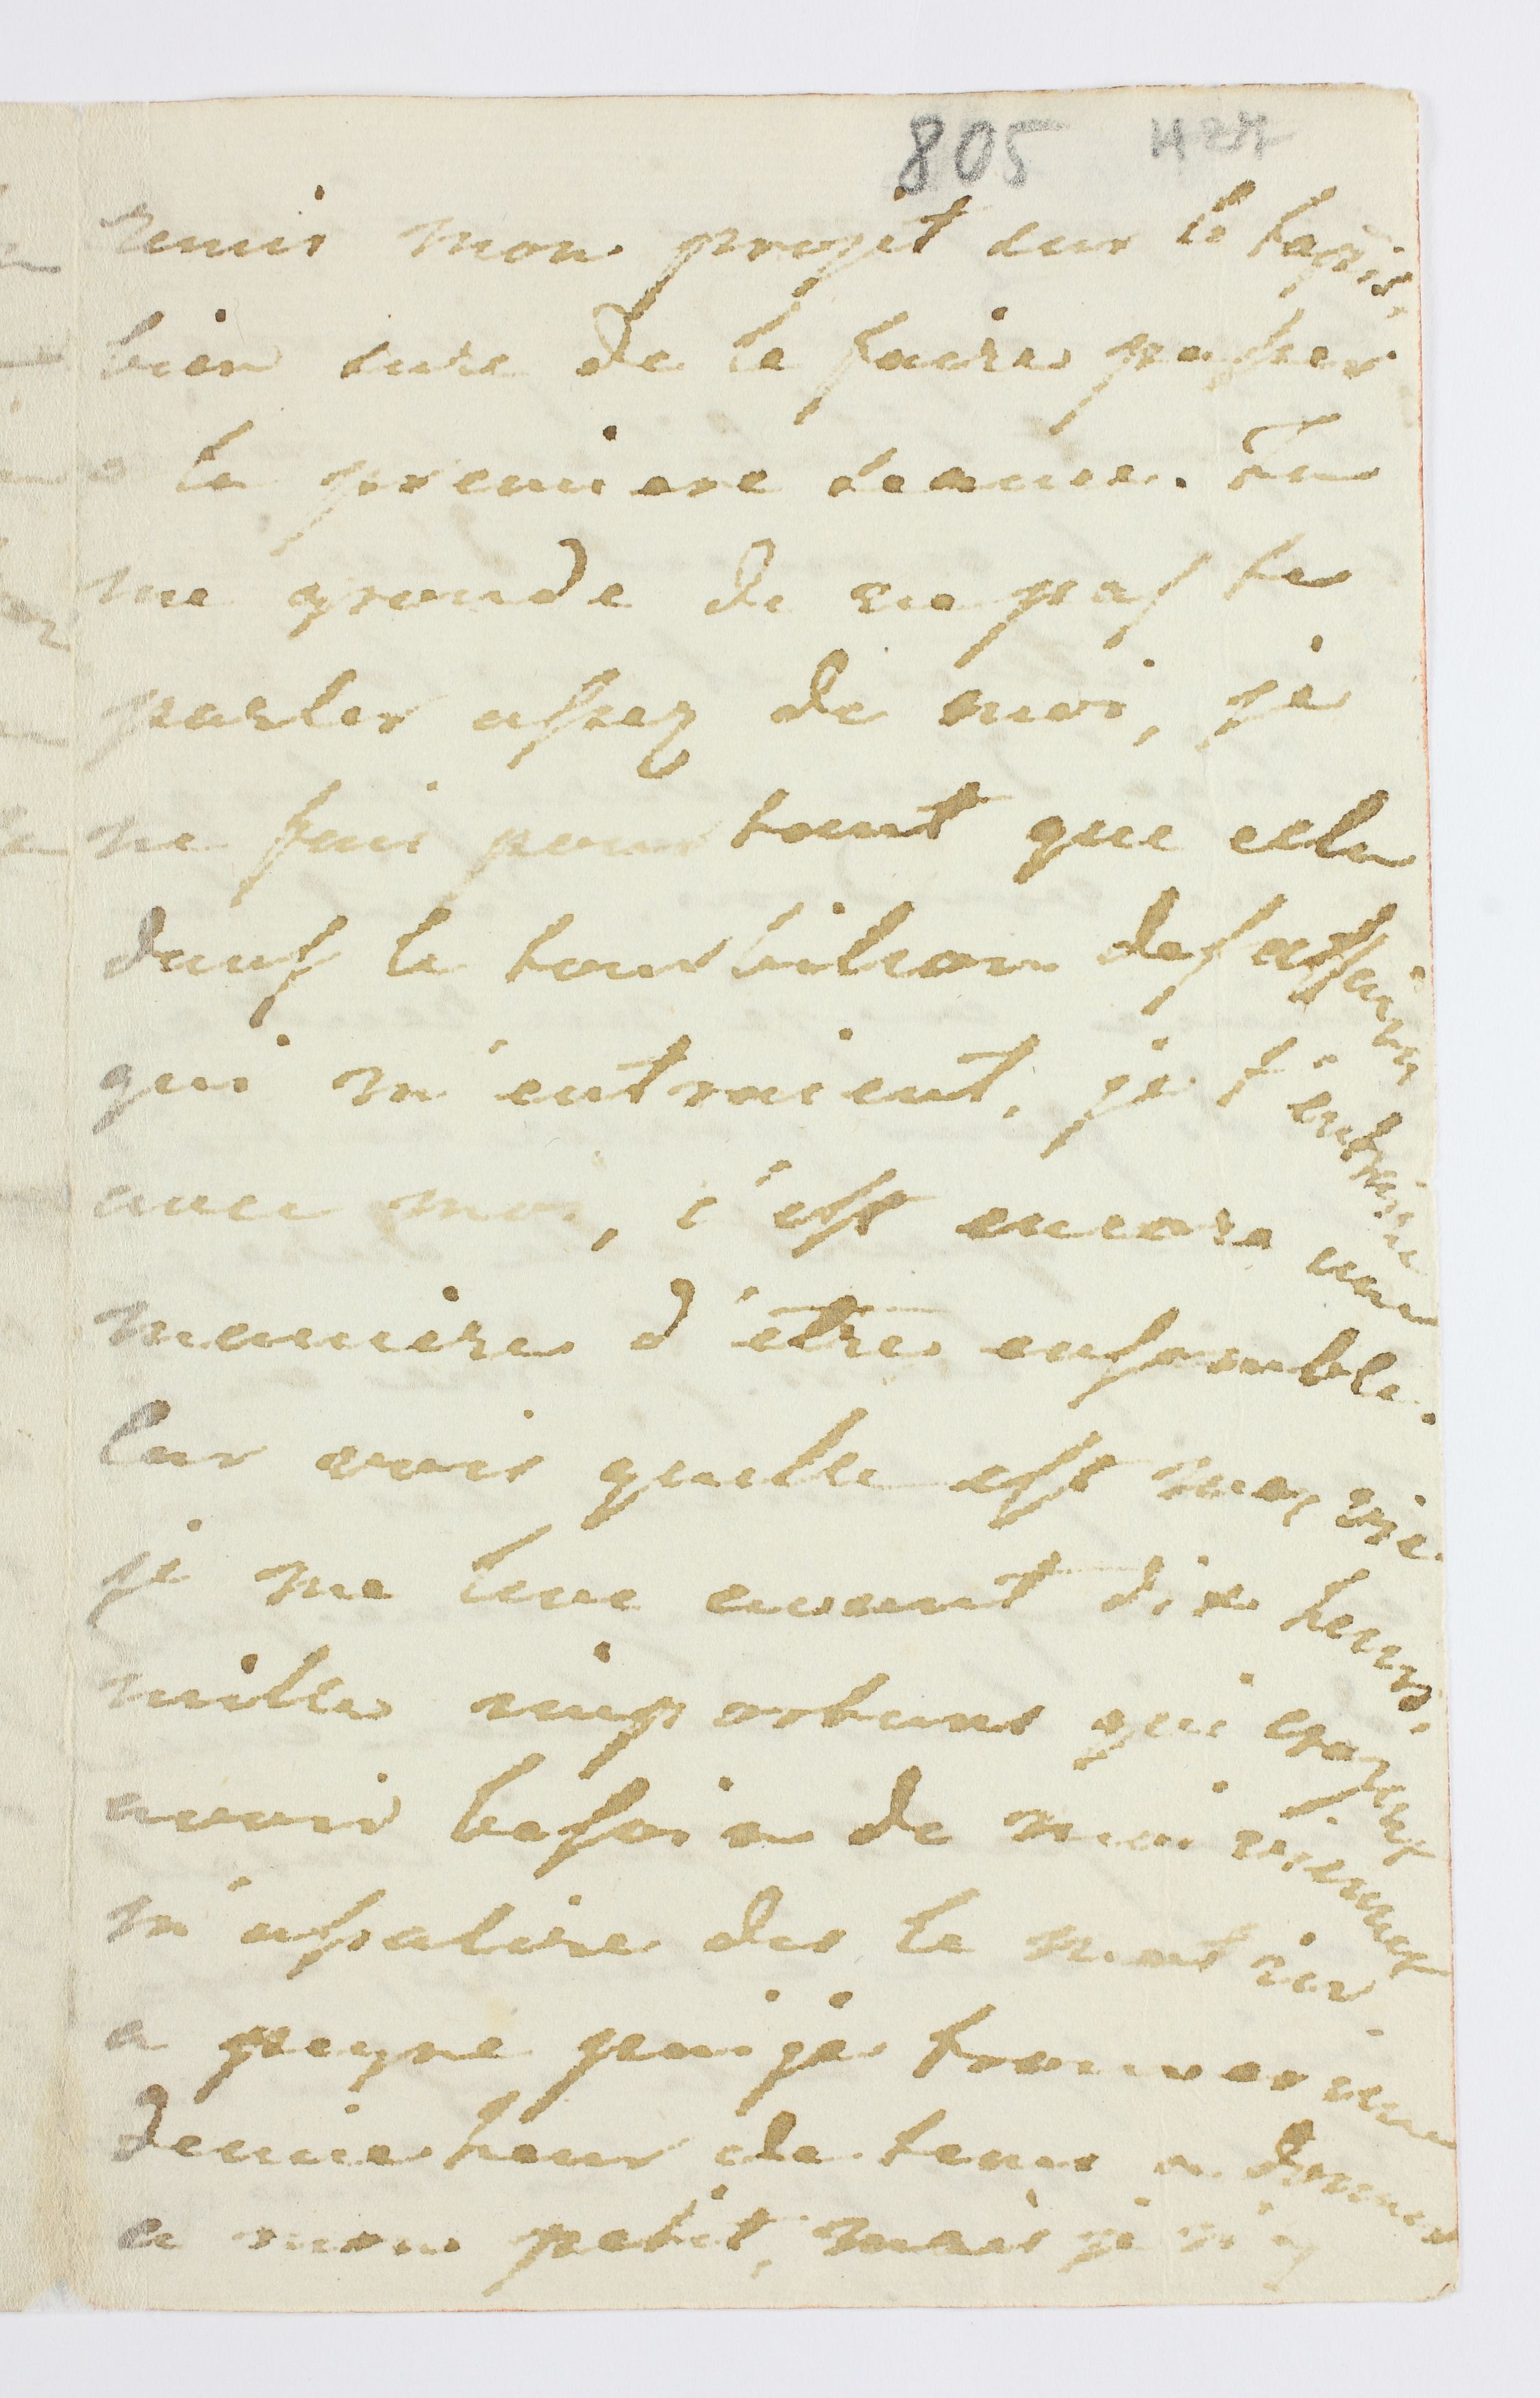 805 H27
remis mon projet sur le tapis,
bien sure de le faire passer
a la premiere seance. Tu
me gronde de ne pas te
parler assez de moi, je
ne fais pourtant que cela
dans le tourbilion des affaires
qui m'entraient, je t'entraine
avec moi, c'est encore une
maniere d'etre ensemble.
Car vois quelle est ma vie
je me leve avant dix heures,
mille importuns qui croyent
avoir besoin de moi viennent
m'assalire des le matin
a peyne puije trouver une
demie heur de tems a donner
a mon petit, mais je n'y